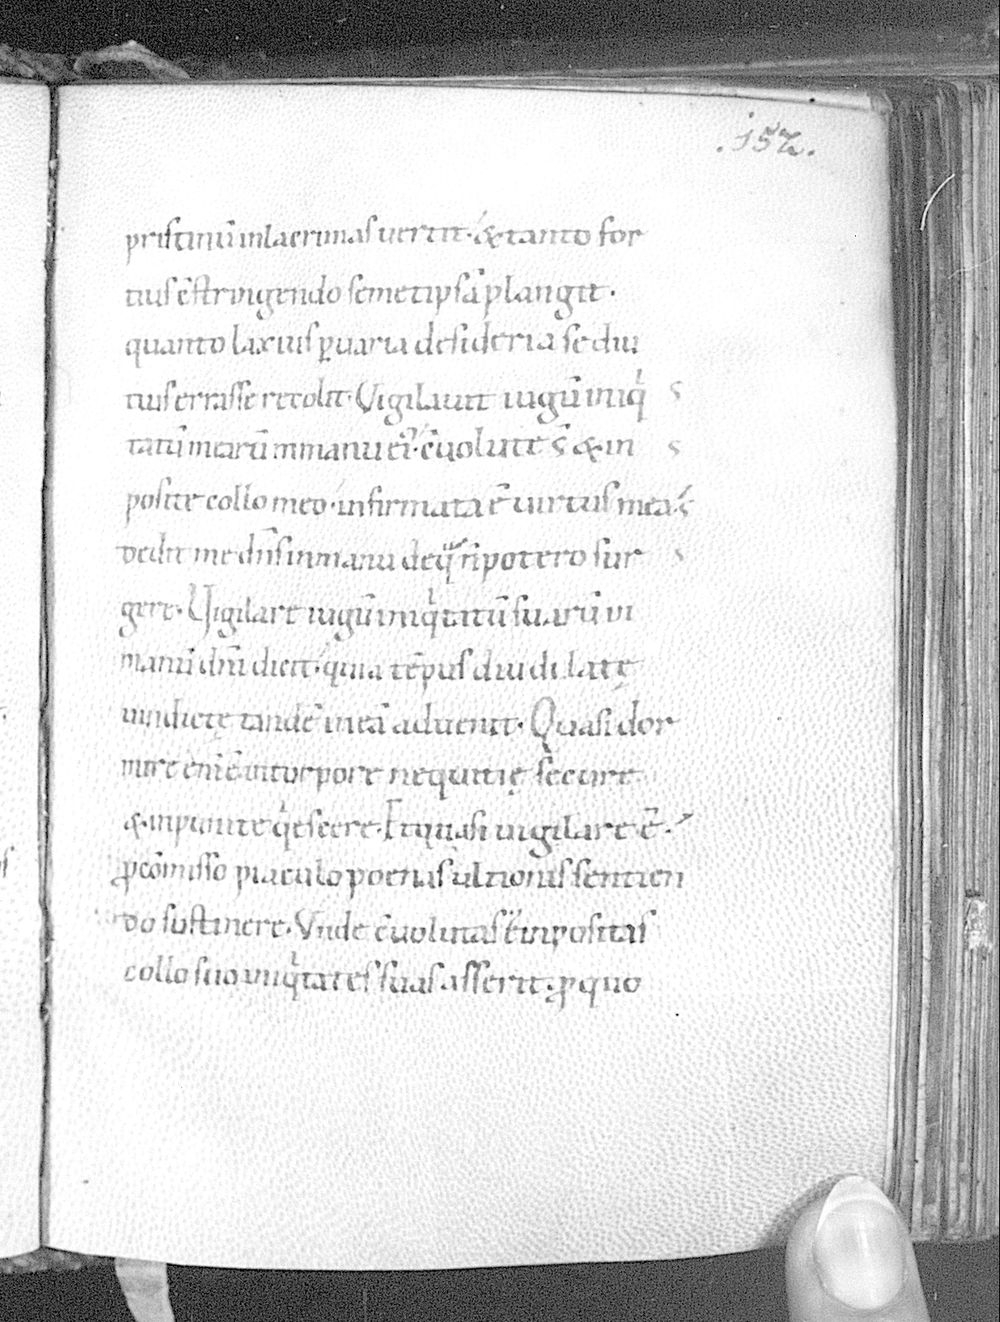 .152.
pristinū inlacrimas uertit· & tanto for
tius c̄stringendo semetipsā plangit·
quanto laxius ꝑuaria desideria se diu
tius errasse recolit· Vigilauit iugū iniq̇
tatū mearū inmanu ei᷒· c̄uolute s̄ & in
posite collo meo· infirmata ē uirtus mea
dedit me dn̄s inmanu de q̄ n̄ potero sur
gere· Vigilare iugū iniq̇tatū suarū in
manu dn̄i dicit· quia tēpus diu dilatę
uindictę tandē in eā aduenit· Quasi dor
mire eni ē intorpore nequitię secure
& inpunite q̇escere· Et quasi uigilare ē·
ꝓ cōmisso piaculo poenas ultionis sentien
do sustinere· Vnde c̄uolutas & inpositas
collo suo iniq̇tates suas asserit· ꝓ quo